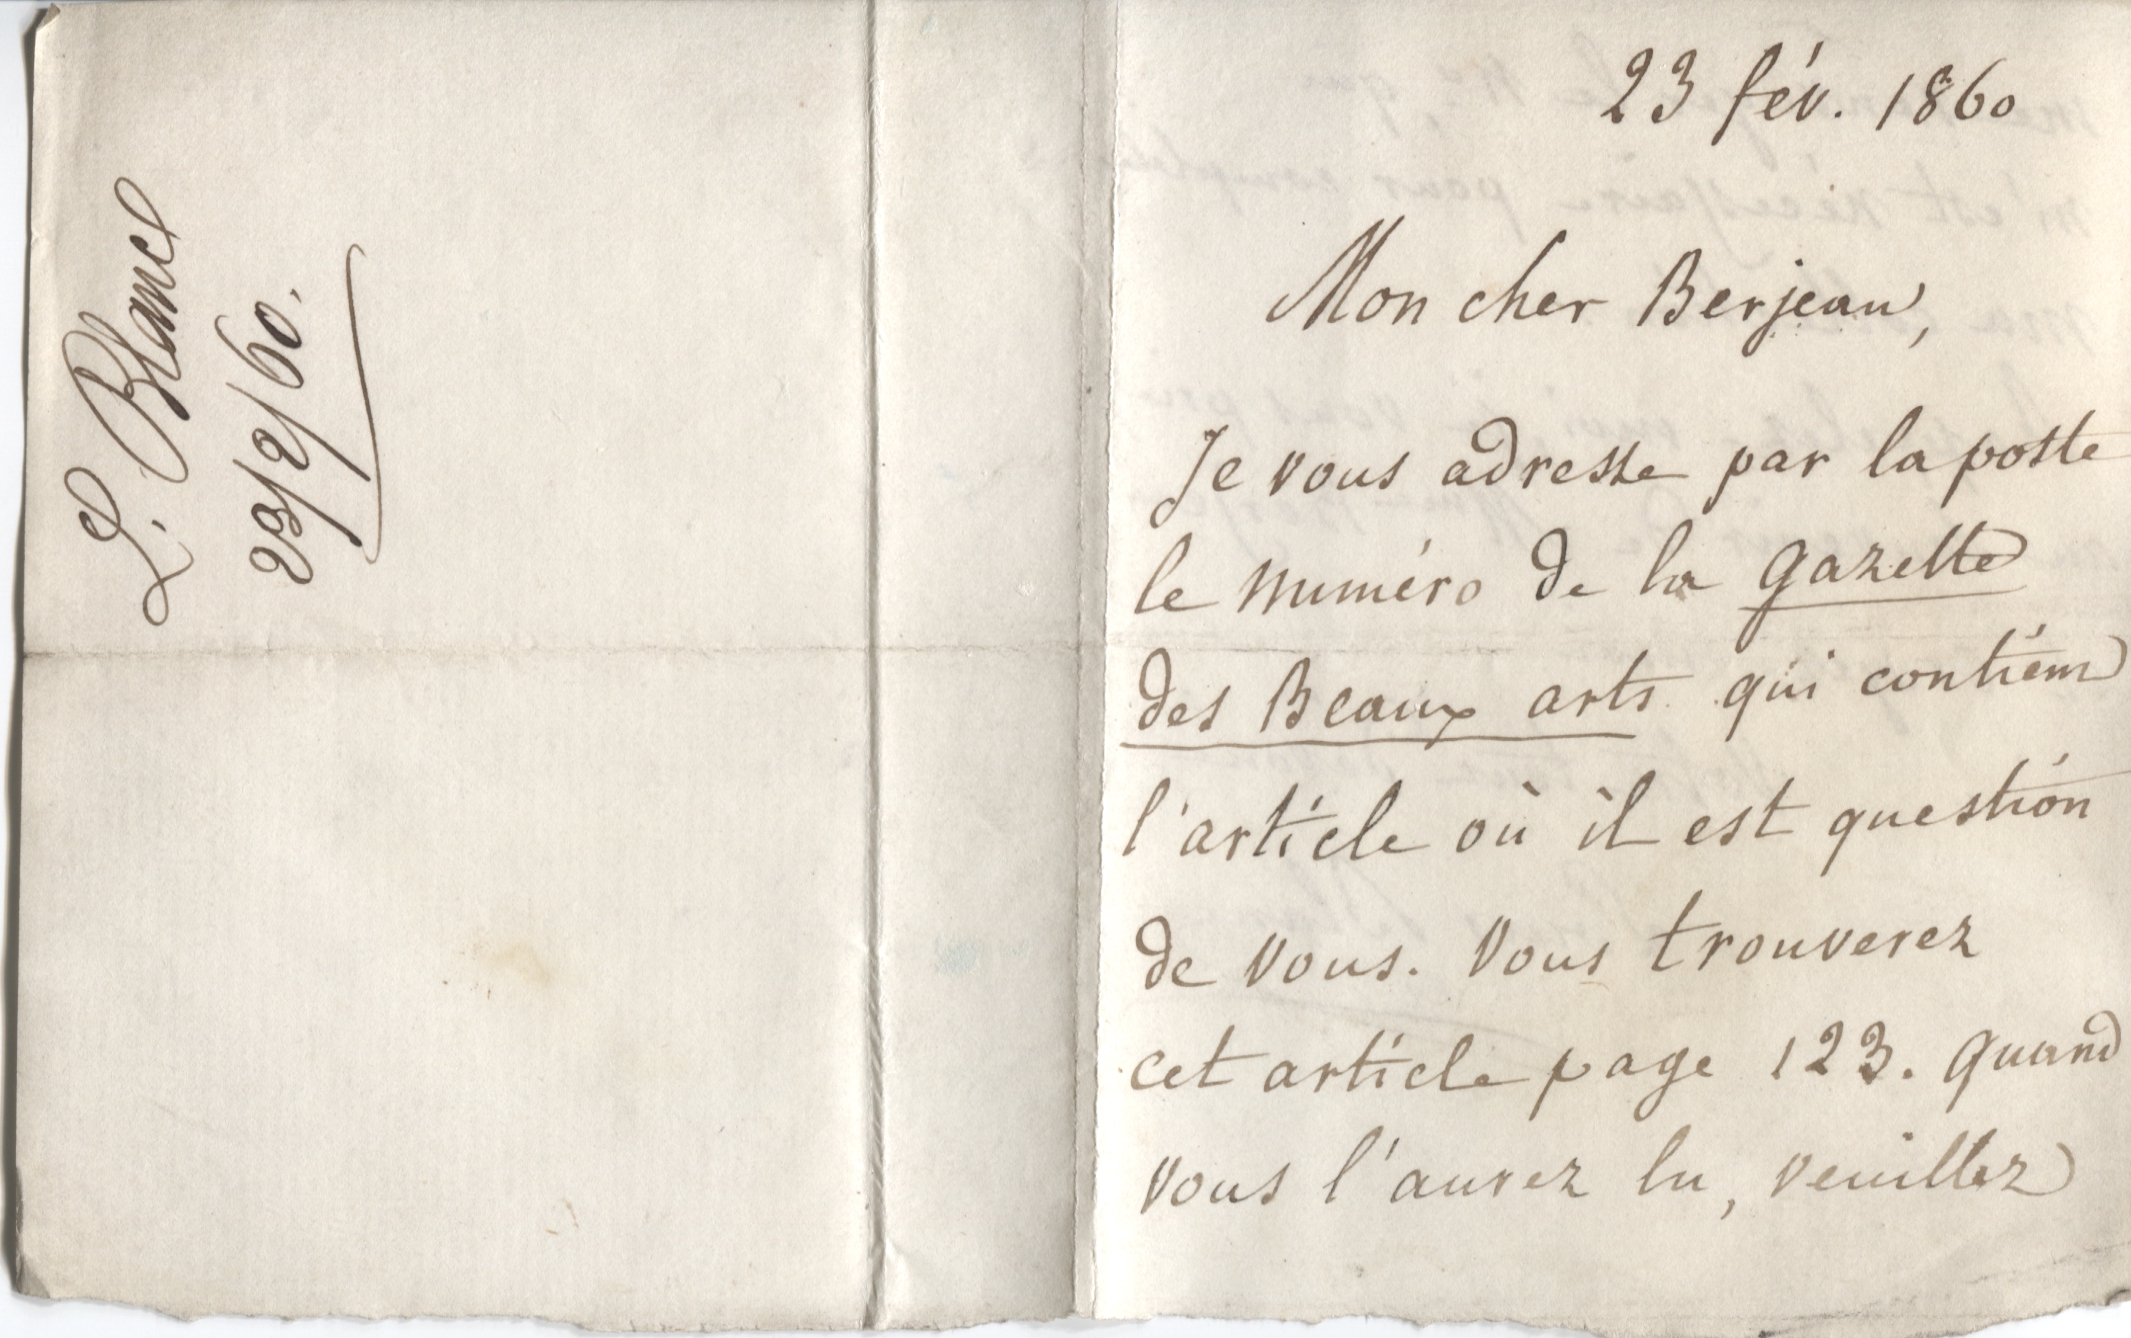 L. Blanc
23/2/60.
23 fév. 1860
Mon cher Berjeau,
Je vous adresse par la poste
le numéro de la gazette
des Beaux arts qui contient
l'article où il est question
de vous. Vous trouverez
cet article page 123. Quand
vous l'aurez lu, veuillez